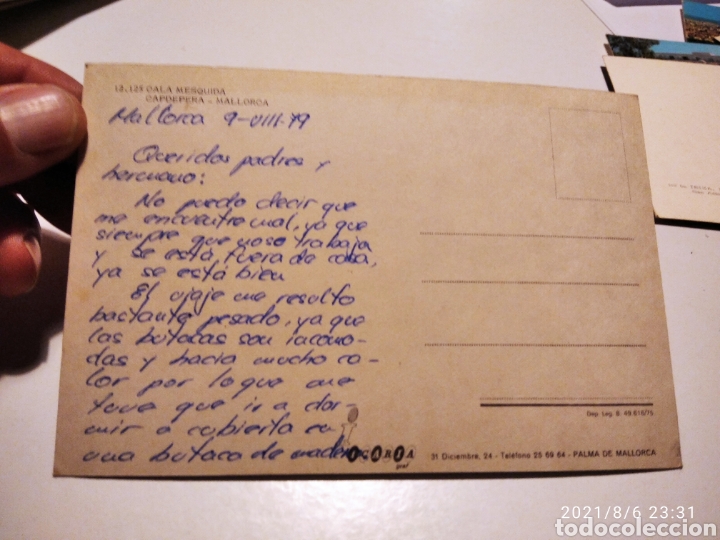 12.125 CALA MESQUIDA
CAPDEPERA - MALLORCA
Mallorca 9-VIII-79
Queridos padres y
hermano:
No puedo decir que
me encuentre mal, ya que
siempre que no se trabaja
y se está fuera de casa,
ya se está bien
El viaje me resulto
bastante pesado, ya que
las butacas son incomo-
das y hacia mucho ca-
lor por lo que me
tuve que ir a dor-
mir a cubierta en
una butaca de madera
ICARIA
31 Diciembre, 24 - Teléfono 25 69 64 - PALMA DE MALLORCA
Dep. Leg. B. 49.610/75
2021/8/6 23:31
todocoleccion